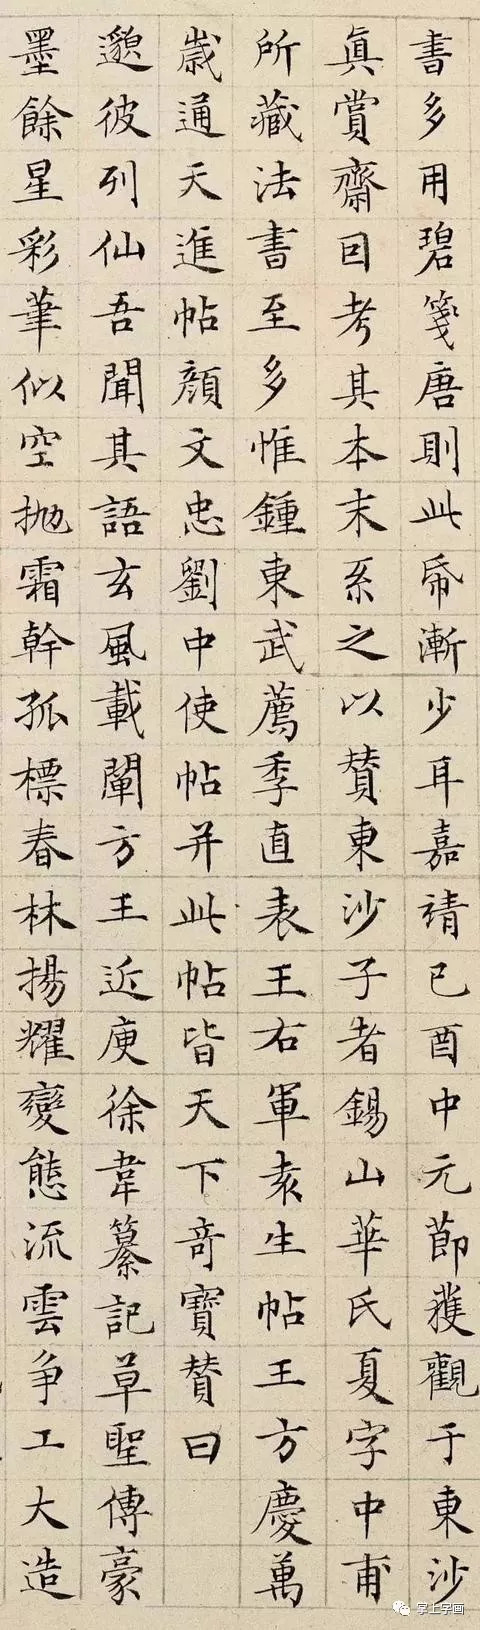 書多用碧箋唐則此帋漸少耳嘉靖已酉中元節獲觀于東沙
真賞齋因考其本末系之以贊東沙子者錫山華氏夏字中甫
所藏法書至多惟鍾東武薦季直表王右軍袁生帖王方慶萬
歲通天進帖顏文忠劉中使帖并此帖皆天下奇寶贊曰
邈彼列仙吾聞其語玄風載闡方王近庾徐韋纂記草聖傳豪
墨餘星彩筆似空拋霜幹孤標春林揚耀變態流雲爭工大造
掌上字画